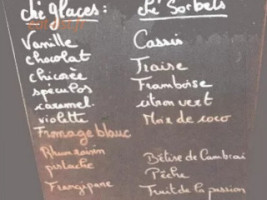 glaces :
Vanille
chocolat
chicorée
spéculos
caramel
violette
Fromage blanc
Rhum raisin
pistache
Frangipane
Sorbets
Cassis
Fraise
Framboise
citron vert
Noix de coco
Bêtise de Cambrai
Pêche
Fruit de la passion